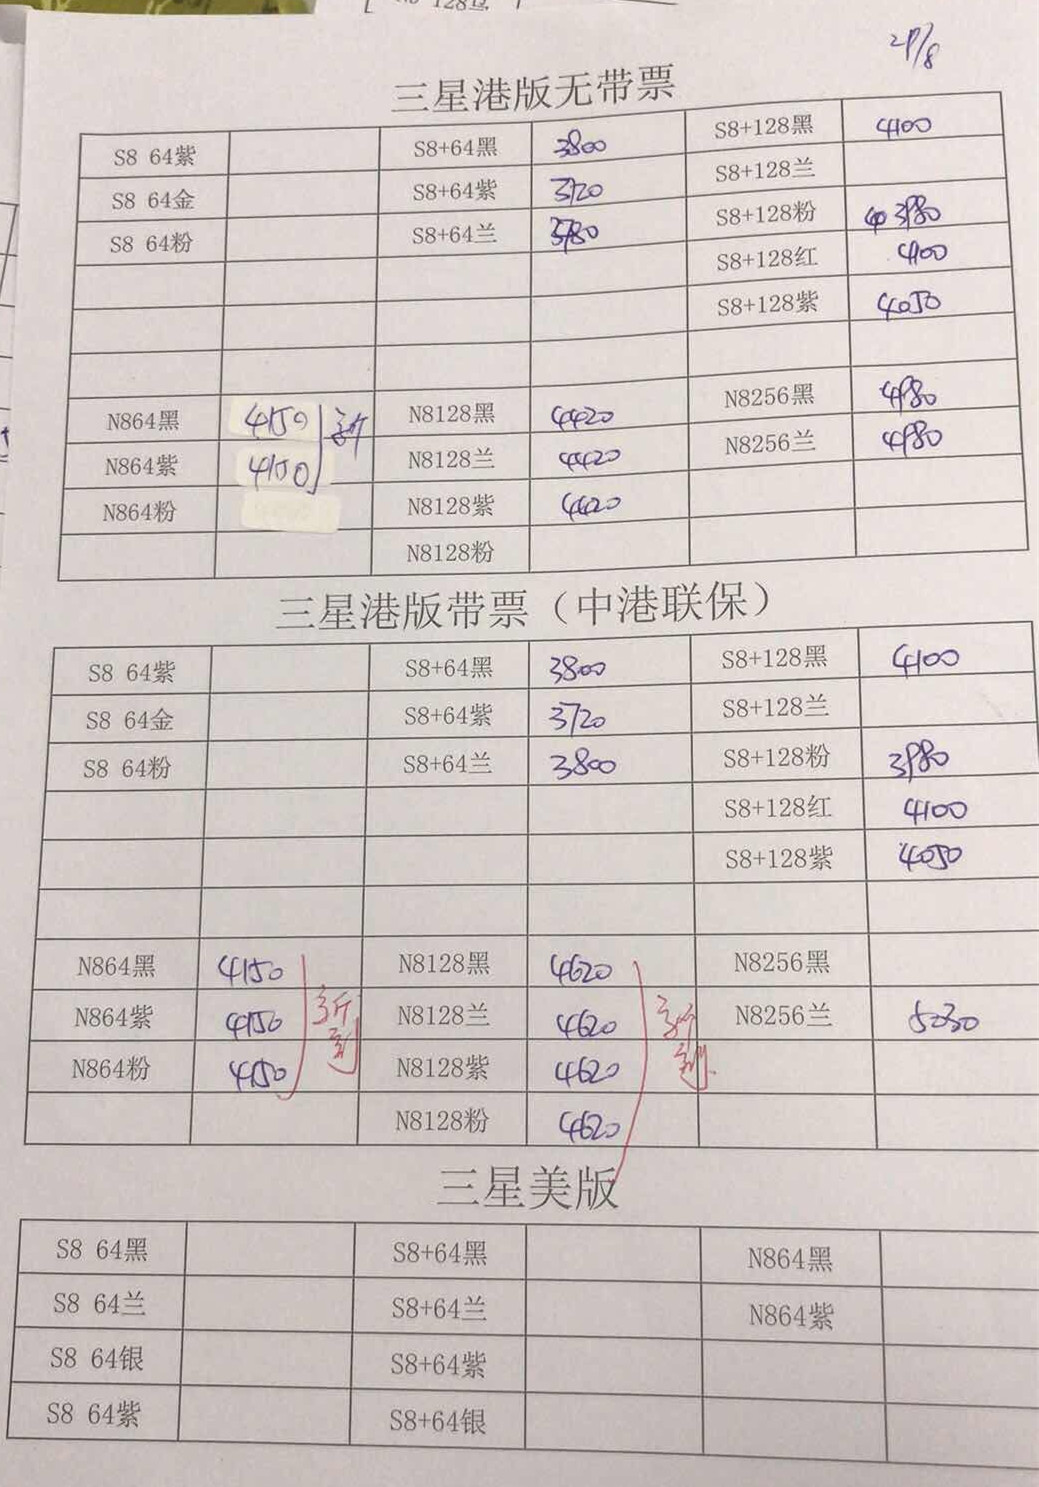 三星港版无带票
S8 64紫 S8+64黑 3800 S8+128黑 4100
S8 64金 S8+64紫 3720 S8+128兰
S8 64粉 S8+64兰 3780 S8+128粉 3980
S8+128红 4100
S8+128紫 4050
N864黑 4150 N8128黑 4420 N8256黑 4980
N864紫 4150 N8128兰 4420 N8256兰 4980
N864粉 N8128紫 4420
N8128粉
三星港版带票（中港联保）
S8 64紫 S8+64黑 3800 S8+128黑 4100
S8 64金 S8+64紫 3720 S8+128兰
S8 64粉 S8+64兰 3800 S8+128粉 3980
S8+128红 4100
S8+128紫 4050
N864黑 4150 N8128黑 4620 N8256黑
N864紫 4150 N8128兰 4620 N8256兰 5030
N864粉 4150 N8128紫 4620
N8128粉 4620
三星美版
S8 64黑 S8+64黑 N864黑
S8 64兰 S8+64兰 N864紫
S8 64银 S8+64紫
S8 64紫 S8+64银